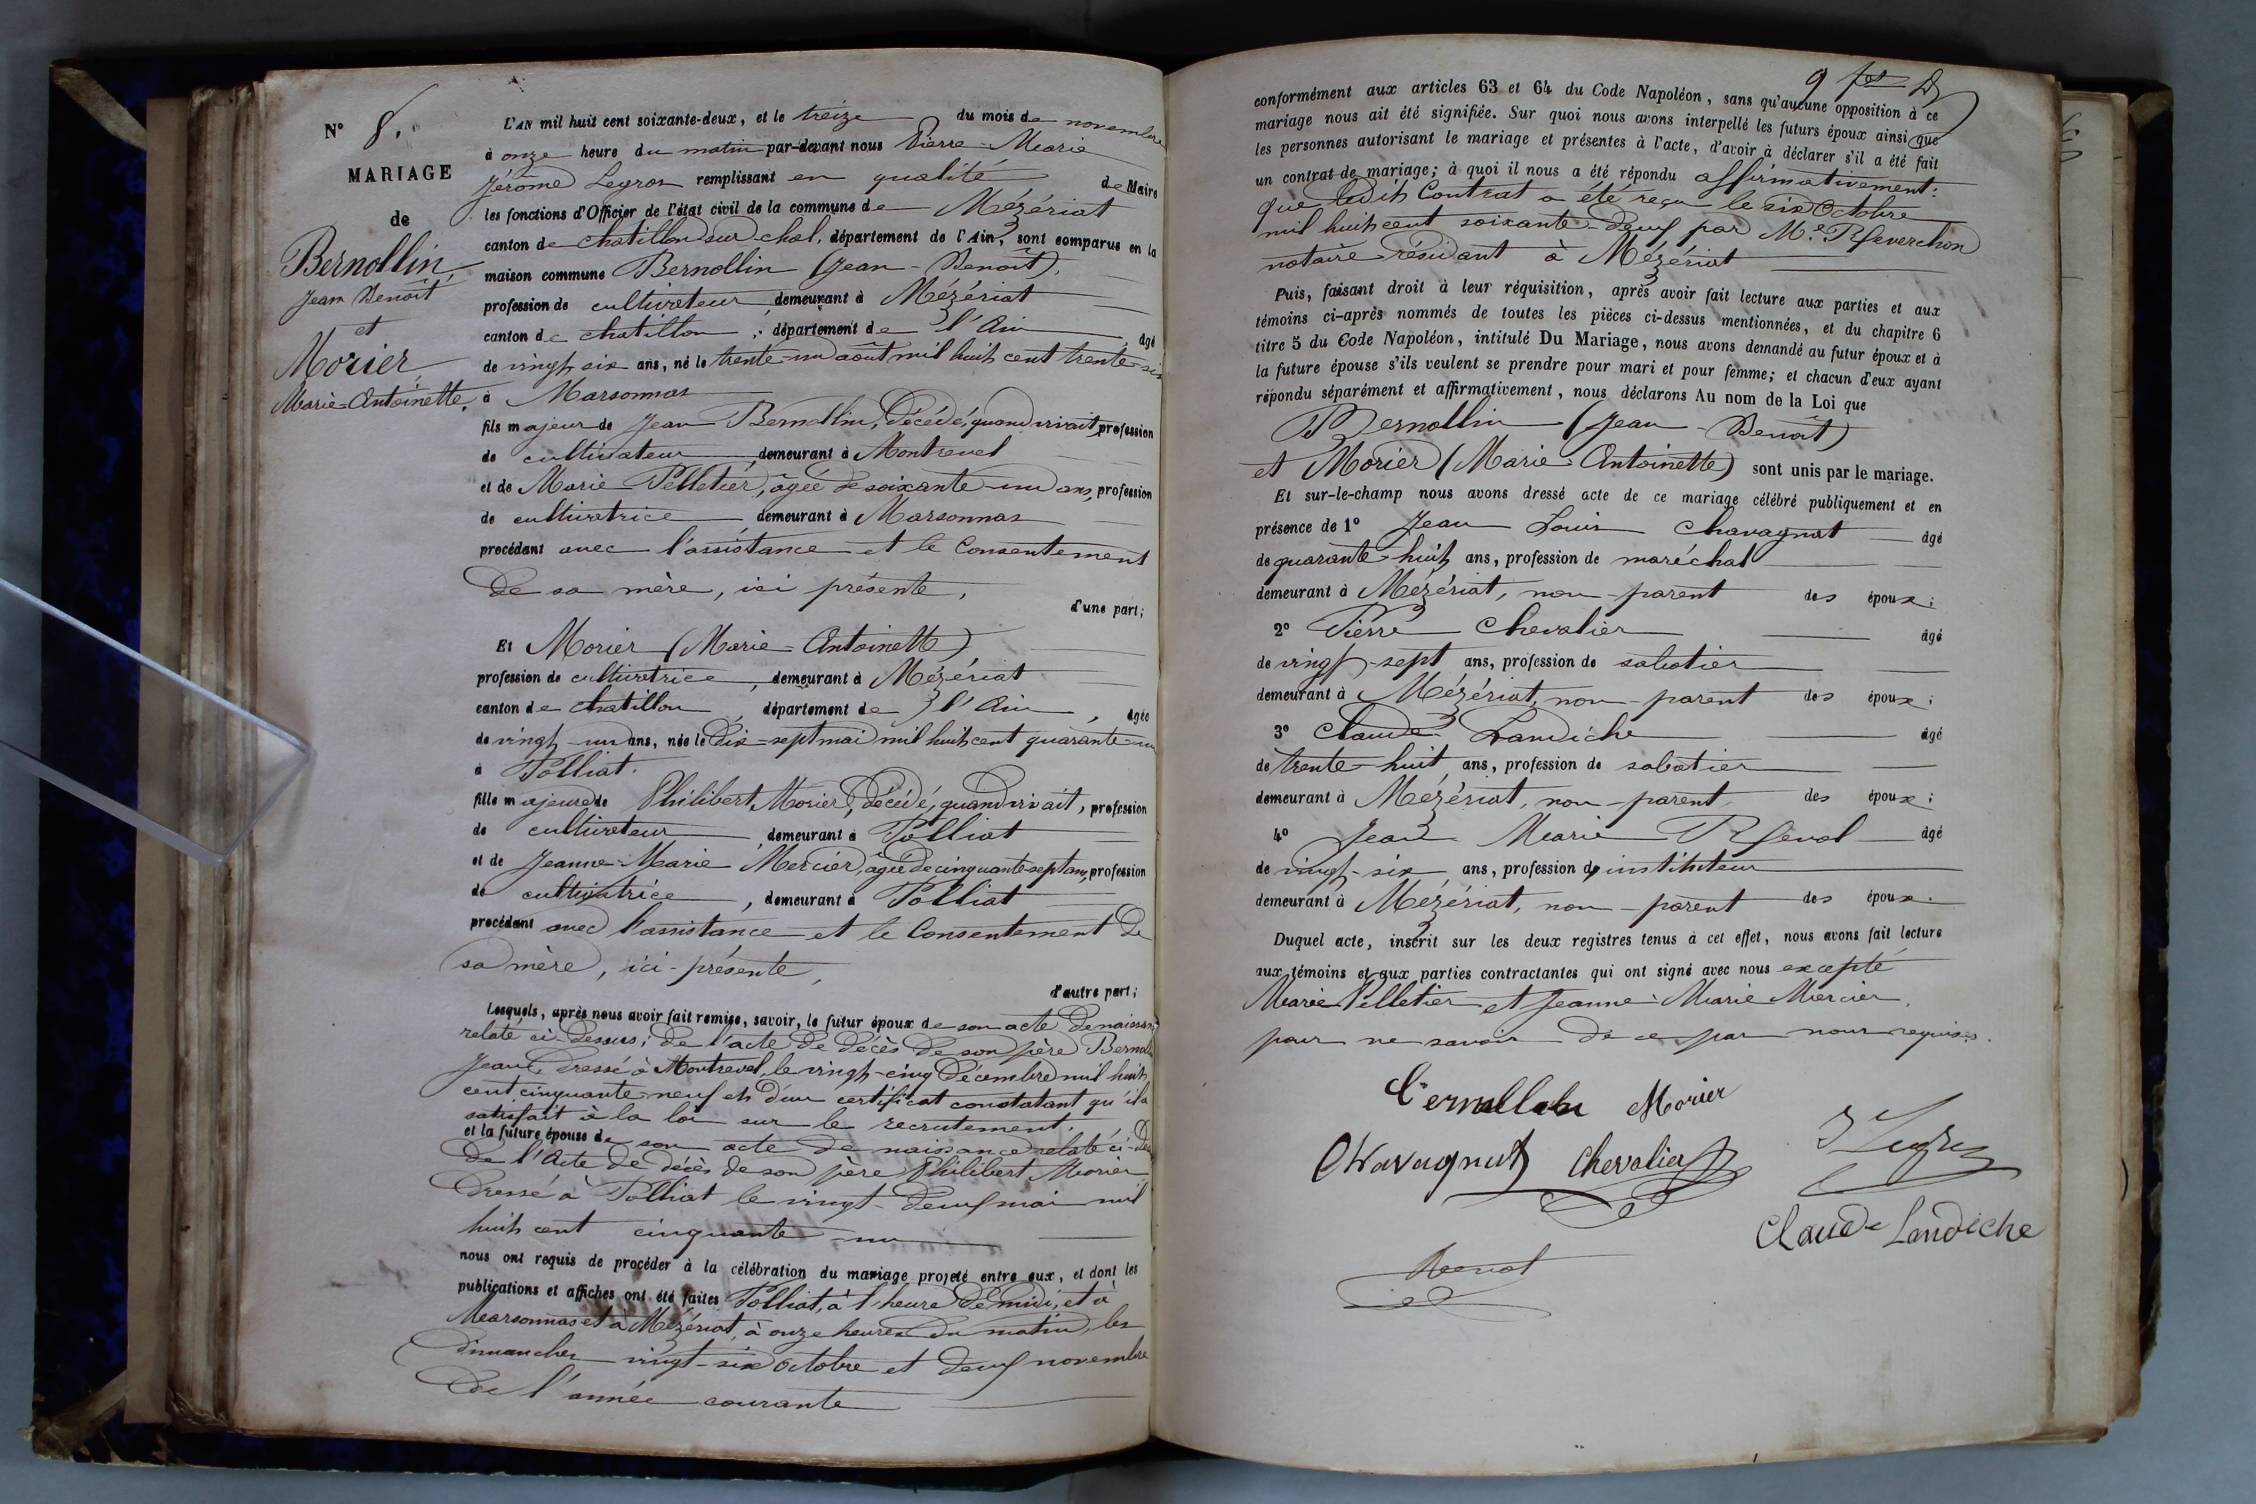 N° 8.
MARIAGE
de
Bernollin,
Jean Benoît
et
Morier
Marie-Antoinette.
L'AN mil huit cent soixante-deux, et le treize du mois de novembre
à onze heure du matin par-devant nous Pierre-Marie
Jérôme Legros remplissant en qualité de Maire
les fonctions d'Officier de l'état civil de la commune de Mézériat
canton de chatillon sur chal. département de l'Ain, sont comparus en la
maison commune Bernollin (Jean-Benoît),
profession de cultivateur, demeurant à Mézériat
canton de chatillon, département de l'Ain, âgé
de vingt six ans, né le trente-un août mil huit cent trente-six
à Marsonnas
fils majeur de Jean Bernollin, décédé, quand vivait, profession
de cultivateur, demeurant à Montrevel
et de Marie Pelletier, âgée de soixante-un ans, profession
de cultivatrice, demeurant à Marsonnas
procédant avec l'assistance et le Consentement
de sa mère, ici présente,
d'une part;
Et Morier (Marie-Antoinette)
profession de cultivatrice, demeurant à Mézériat
canton de chatillon, département de l'Ain, âgée
de vingt-un ans, née le dix-sept mai mil huit cent quarante-un
à Polliat.
fille majeure de Philibert Morier, décédé, quand vivait, profession
de cultivateur, demeurant à Polliat
et de Jeanne-Marie Mercier, âgée de cinquante-sept ans, profession
de cultivatrice, demeurant à Polliat
procédant avec l'assistance et le Consentement de
sa mère, ici-présente,
d'autre part;
Lesquels, après nous avoir fait remise, savoir, le futur époux de son acte de naissance
relaté ci-dessus; de l'acte de décès de son père Bernollin
Jean, dressé à Montrevel, le vingt-cinq décembre mil huit
cent cinquante-neuf et d'un certificat constatant qu'il a
satisfait à la loi sur le recrutement.
et la future épouse de son acte de naissance relaté ci-des
de l'Acte de décès de son père Philibert Morier
dressé à Polliat le vingt-deux mai mil
huit cent cinquante-un
nous ont requis de procéder à la célébration du mariage projeté entre eux, et dont les
publications et affiches ont été faites Polliat, à l'heure de midi, et à
Marsonnas et à Mézériat, à onze heures du matin, les
dimanches vingt-six octobre et deux novembre
de l'année courante
9
conformément aux articles 63 et 64 du Code Napoléon, sans qu'aucune opposition à ce
mariage nous ait été signifiée. Sur quoi nous avons interpellé les futurs époux ainsi que
les personnes autorisant le mariage et présentes à l'acte, d'avoir à déclarer s'il a été fait
un contrat de mariage; à quoi il nous a été répondu affirmativement:
que ledit Contrat a été reçu le six Octobre
mil huit cent soixante-deux par Me. Reverchon
notaire résidant à Mézériat
Puis, faisant droit à leur réquisition, après avoir fait lecture aux parties et aux
témoins ci-après nommés de toutes les pièces ci-dessus mentionnées, et du chapitre 6
titre 5 du Code Napoléon, intitulé Du Mariage, nous avons demandé au futur époux et à
la future épouse s'ils veulent se prendre pour mari et pour femme; et chacun d'eux ayant
répondu séparément et affirmativement, nous déclarons Au nom de la Loi que
Bernollin (Jean-Benoît)
et Morier (Marie Antoinette) sont unis par le mariage.
Et sur-le-champ nous avons dressé acte de ce mariage célébré publiquement et en
présence de 1° Jean Louis Chavagnat âgé
de quarante-huit ans, profession de maréchal
demeurant à Mézériat, non-parent des époux;
2° Pierre Chevalier âgé
de vingt-sept ans, profession de sabotier
demeurant à Mézériat, non-parent des époux;
3° Claude Landiche âgé
de trente-huit ans, profession de sabotier
demeurant à Mézériat, non-parent des époux;
4° Jean Marie Revol âgé
de vingt-six ans, profession d'instituteur
demeurant à Mézériat, non-parent des époux.
Duquel acte, inscrit sur les deux registres tenus à cet effet, nous avons fait lecture
aux témoins et aux parties contractantes qui ont signé avec nous excepté
Marie Pelletier et Jeanne-Marie Mercier,
pour ne savoir de ce par nous requises.
Morier
Chavagnat Chevalier
Claude Landiche
Revol